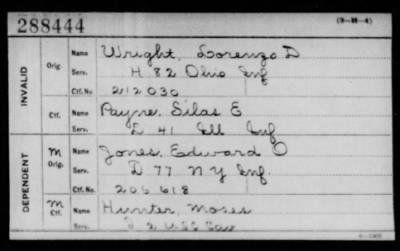 288444
(3-M-4)
INVALID
Orig.
Name Wright, Lorenzo D
Serv. H 82 Ohio Inf
Ctf. No 212030
Ctf.
Name Payne, Silas E
Serv. D 41 Ill Inf
DEPENDENT
M Orig.
Name Jones, Edward O
Serv. D 77 N Y Inf.
Ctf. No. 206618
M Ctf.
Name Hunter, Moses
Serv. 2 U.S.C Cav